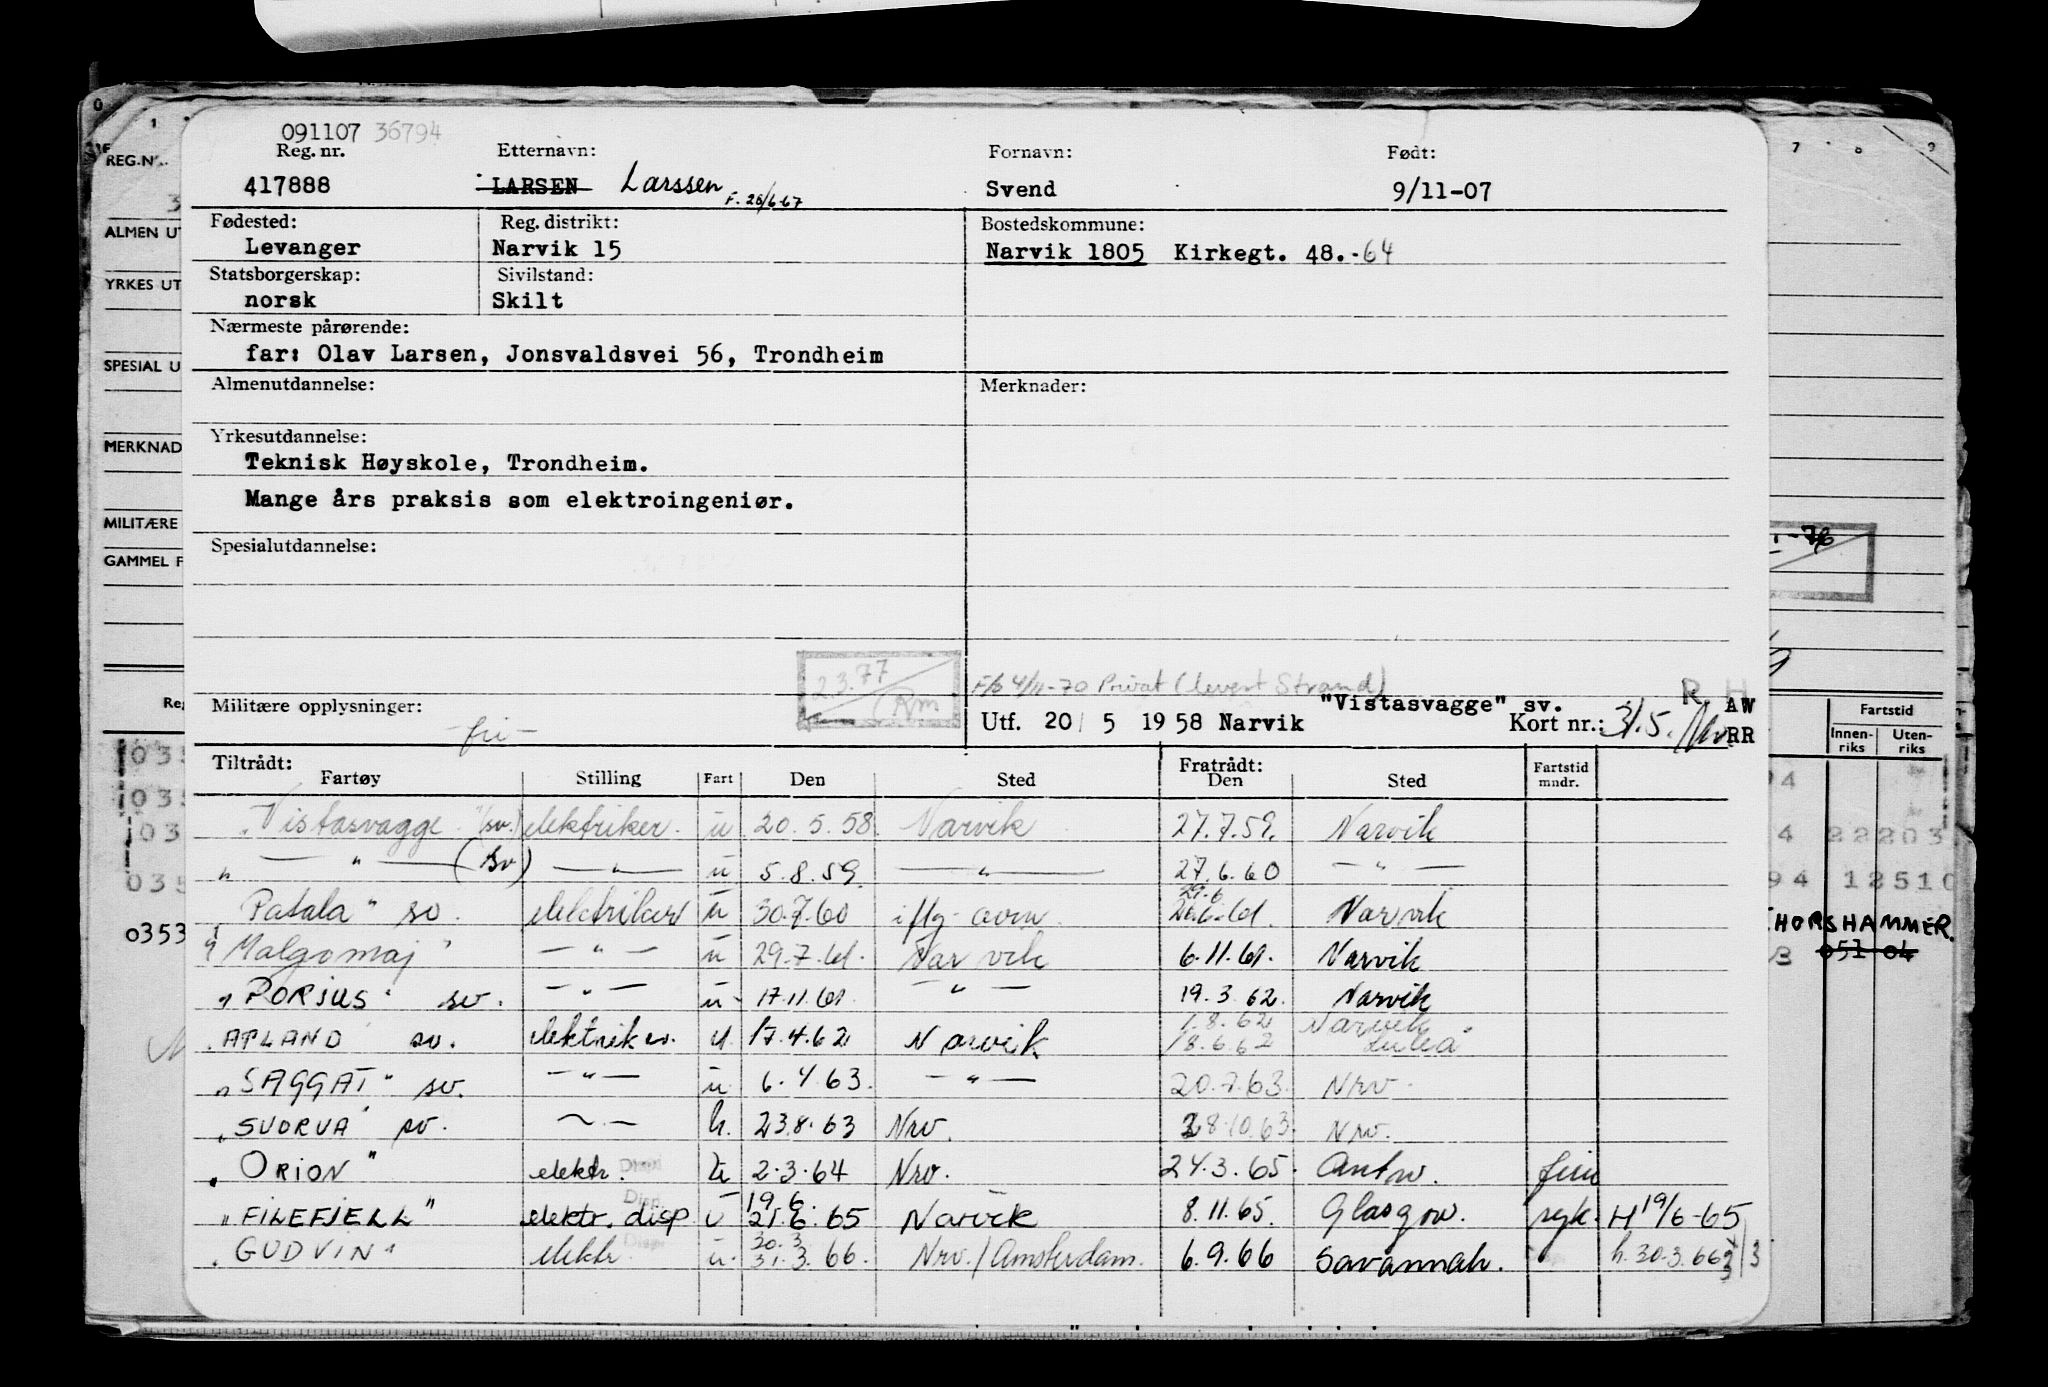 091107 36794
Reg. nr. Etternavn: Fornavn: Født:
417888 LARSEN Larssen F. 26/6-67 Svend 9/11-07
Fødested: Reg. distrikt: Bostedskommune:
Levanger Narvik 15 Narvik 1805 Kirkegt. 48.-64
Statsborgerskap: Sivilstand:
norsk Skilt
Nærmeste pårørende:
far: Olav Larsen, Jonsvaldsvei 56, Trondheim
Almenutdannelse: Merknader:
Yrkesutdannelse:
Teknisk Høyskole, Trondheim.
Mange års praksis som elektroingeniør.
Spesialutdannelse:
2.3.77 Rm
F/b 4/11-70 Privat (levert Strand)
R H
Militære opplysninger: -fri- "Vistasvagge" sv. AW
Utf. 20/5 1958 Narvik Kort nr.: RR
Tiltrådt: Fratrådt:
Fartøy Stilling Fart Den Sted Den Sted Fartstid mndr.
"Vistasvagge" (sv.) elektriker. u 20.5.58. Narvik 27.7.59. Narvik
" — " — (sv) — " — u 5.8.59. — " — 27.6.60 — " —
Patala" sv. elektriker u 30.7.60 29.6 Narvik
" Malgomaj" — " — u 29.7.61. Narvik 6.11.61. Narvik
"PORJUS" sv. — " — u 17.11.61. — " — 19.3.62. Narvik
"APLAND" sv. elektriker. u. 17.4.62 Narvik 1.8.62 Narvik
18.6.62 Luleå
"SAGGAT" sv. — " — u 6.4.63. — " — 20.7.63. Nrv.
"SUORVA" sv. — " — u. 23.8.63 Nrv. 28.10.63. Nrv.
"ORION" elektr. u 2.3.64 Nrv. 24.3.65. Antw.
19.6.
"FILEFJELL" elektr. disp u 21.6.65 Narvik 8.11.65. Glasgow. syk. H 19/6-65
30.3
"GUDVIN" elektr. u. 31.3.66. Nrv./Amsterdam. 6.9.66 Savannah. h. 30.3.66
REG.NR.
ALMEN UT
YRKES UT
SPESIAL U
MERKNAD
MILITÆRE
GAMMEL F
Reg
035
035
03
035
0353
7 8 9
1-76
Fartstid
Innen-riks Uten-riks
94
4 22203
94 12510
THORSHAMMER.
3 051 04